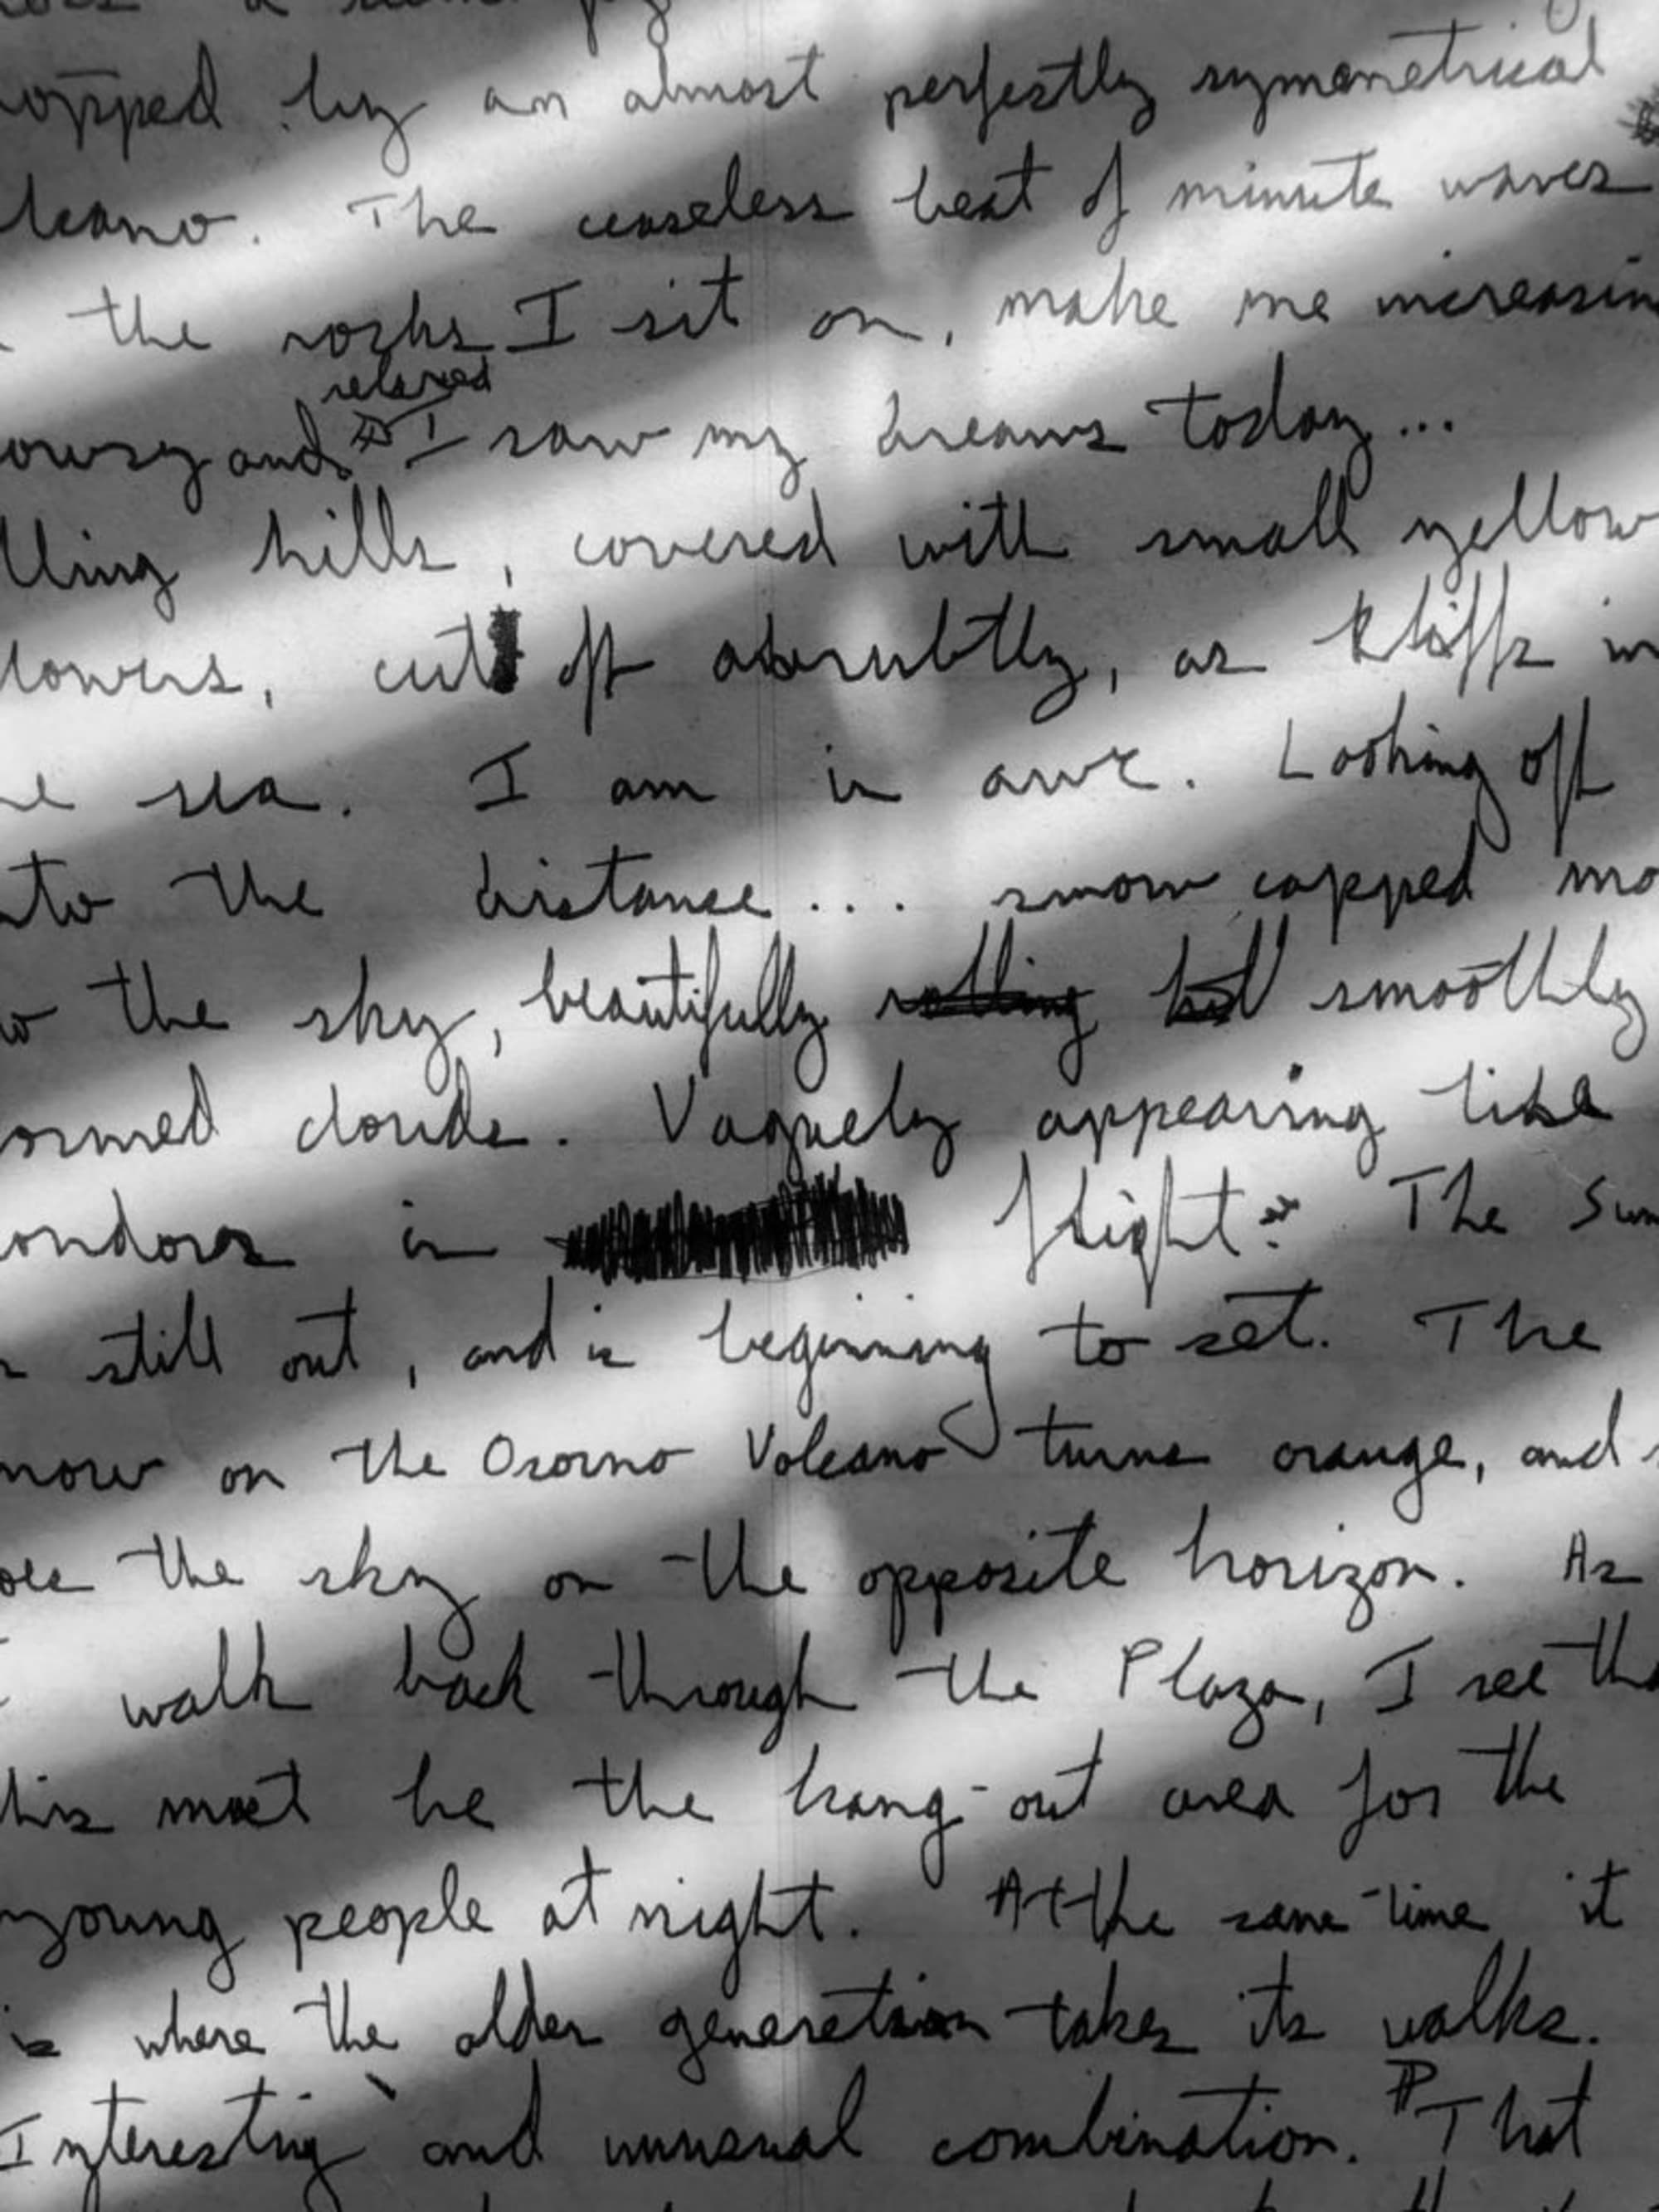 opped by an almost perfectly symmetrical
lcano. The ceaseless beat of minute waves
the rocks I sit on, make me increasin
relaxed
owsy and I saw my dreams today...
lling hills, covered with small yellow
lowers, cut off abrubtly, as kliffs in
e sea. I am in awe. Looking off
nto the distance... snow capped mo
o the sky, beautifully rolling hil smoothly
ormed clouds. Vaguely appearing like
ondors in flight. The Sun
s still out, and is beginning to set. The
now on the Osorno Volcano turns orange, and
oes the sky on the opposite horizon. As
I walk back through the Plaza, I see tha
this must be the hang-out area for the
young people at night. At the same time it
is where the older generation takes its walks.
Interesting and unusual combination. ¶ That